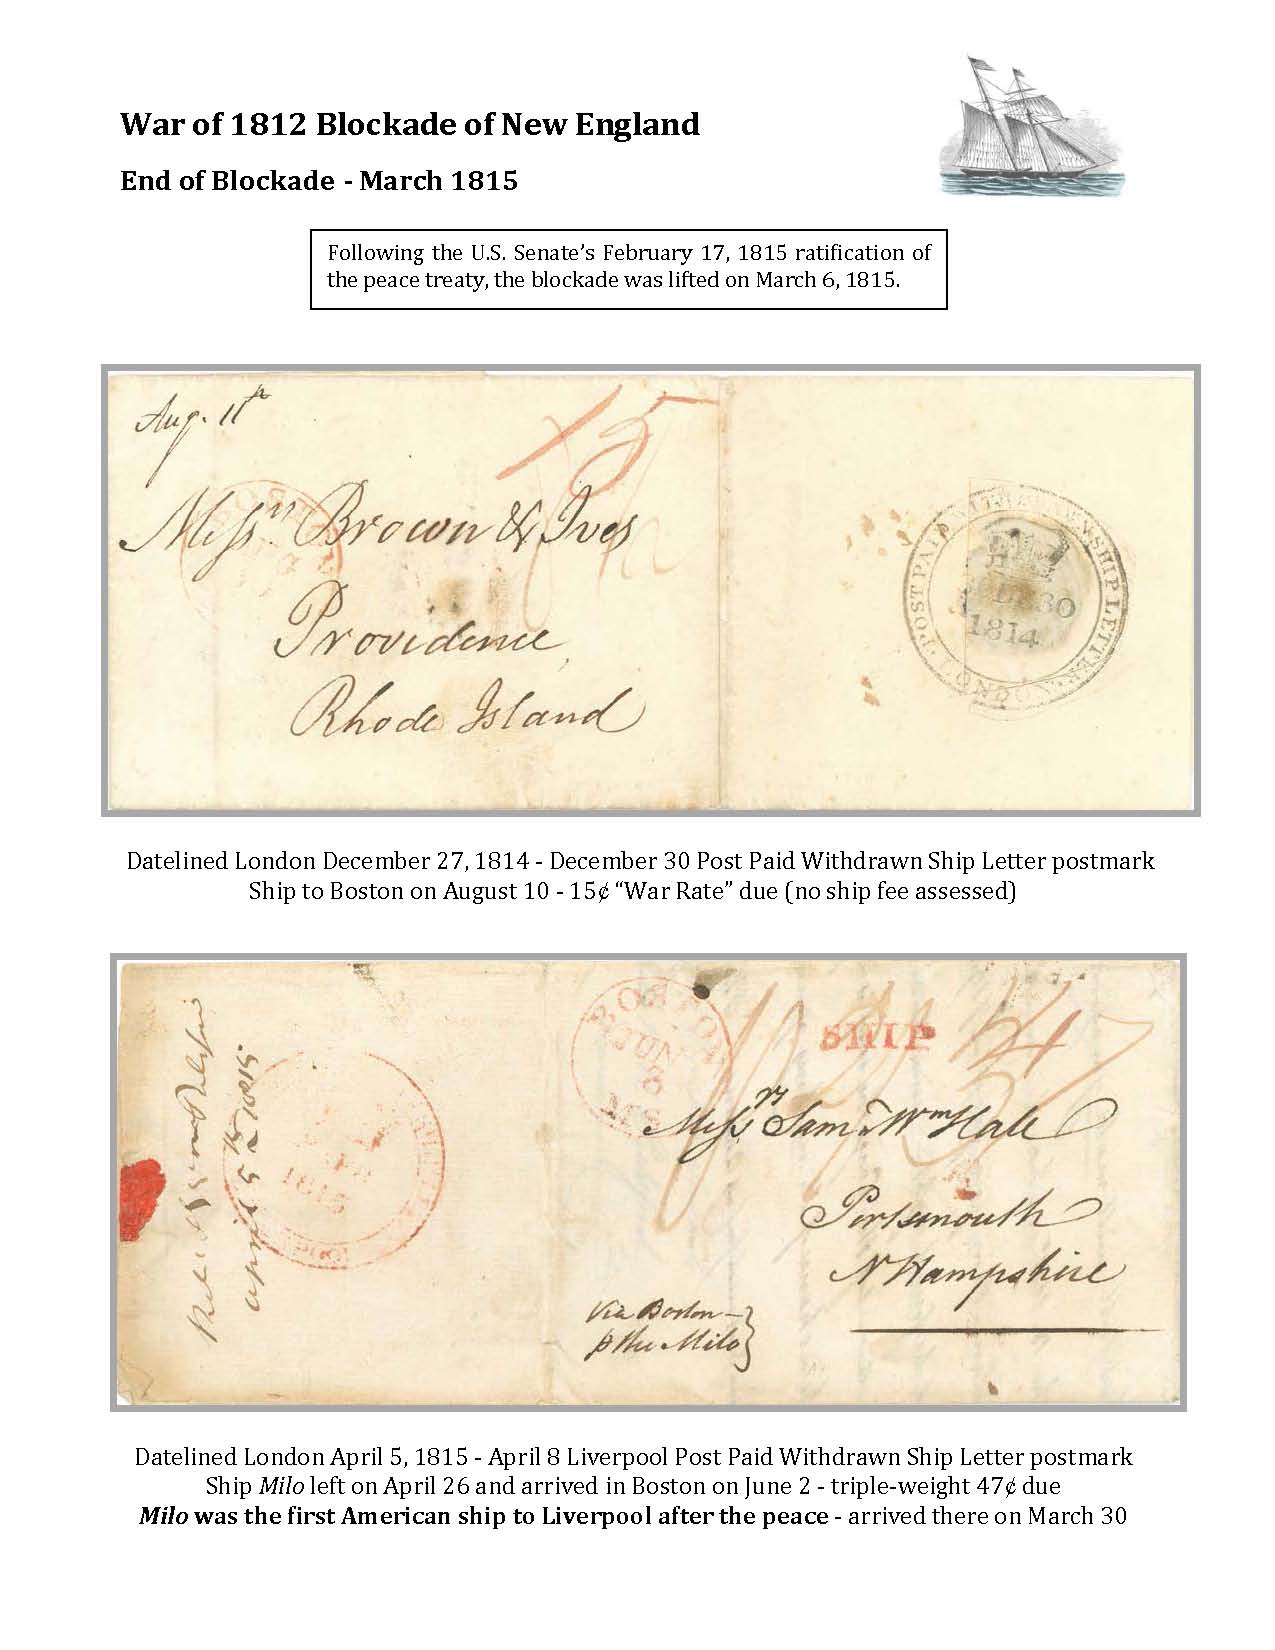 War of 1812 Blockade of New England
End of Blockade - March 1815
Following the U.S. Senate’s February 17, 1815 ratification of
the peace treaty, the blockade was lifted on March 6, 1815.
Aug. 11th
15
Messrs Brown & Ives
Providence
Rhode Island
POST PAID WITHDRAWN SHIP LETTER LONDON
30
1814
Datelined London December 27, 1814 - December 30 Post Paid Withdrawn Ship Letter postmark
Ship to Boston on August 10 - 15¢ “War Rate” due (no ship fee assessed)
april 5th 1815
1815
BOSTON
JUN
3
MS
SHIP
47
Messrs Sam & Wm Hale
Portsmouth
N Hampshire
Via Boston
p the Milo
Datelined London April 5, 1815 - April 8 Liverpool Post Paid Withdrawn Ship Letter postmark
Ship Milo left on April 26 and arrived in Boston on June 2 - triple-weight 47¢ due
Milo was the first American ship to Liverpool after the peace - arrived there on March 30